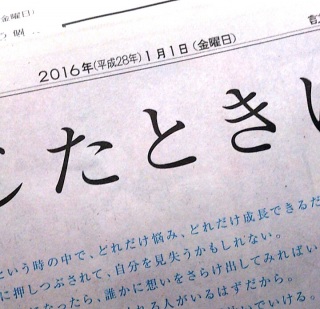 金曜日)
2016年(平成28年)1月1日(金曜日)
たとき
という時の中で、どれだけ悩み、どれだけ成長できるだ
に押しつぶされて、自分を見失うかもしれない。
なったら、誰かに想いをさらけ出してみればい
る人がいるはずだから。
いでいける。